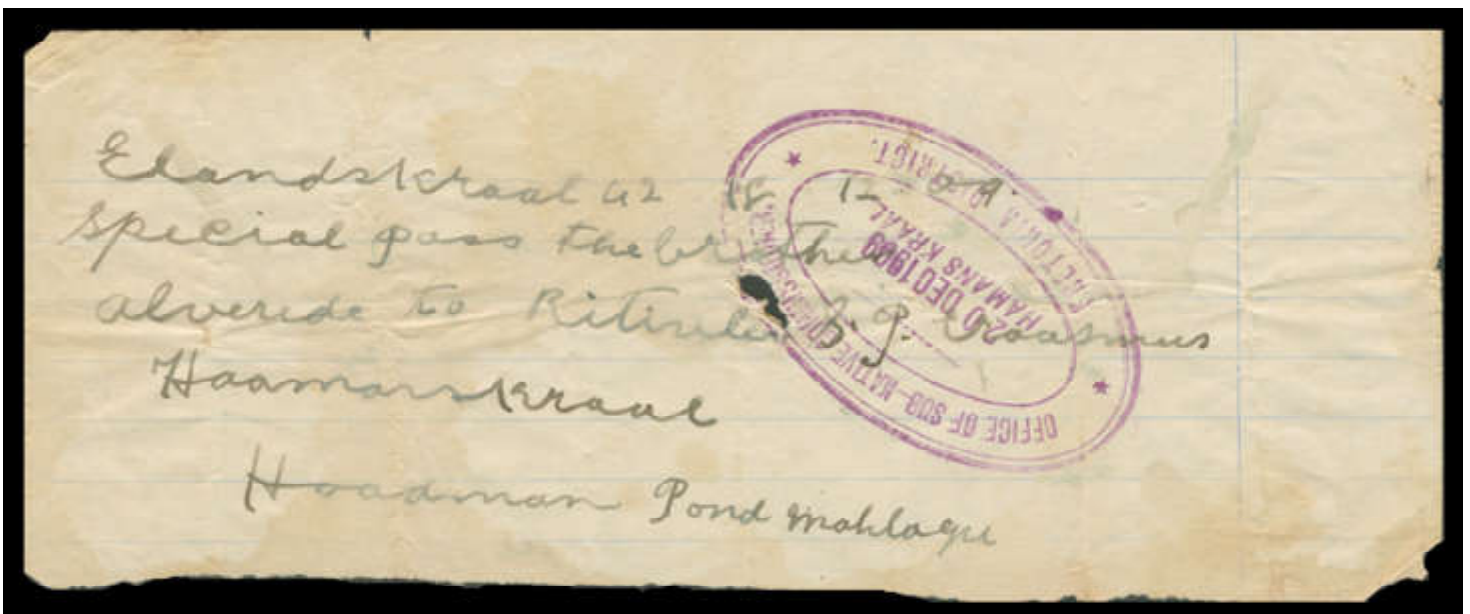 Elandskraal 42 18 12 09.
Special pass the brother
alverede to J. J. Eraasmus
Haamanskraal
Hoadman Pond Mahlagu
OFFICE OF SUB-NATIVE COMMISSIONER.
20 DEC 1909
HAMANS KRAAL
PRETORIA DISTRICT.